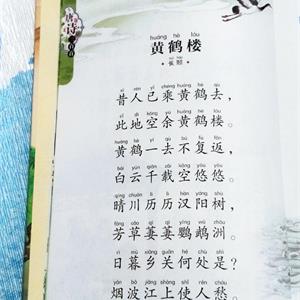 唐诗
huáng hè lóu
黄鹤楼
崔颢
xī rén yǐ chéng huáng hè qù
昔人已乘黄鹤去，
cǐ dì kōng yú huáng hè lóu
此地空余黄鹤楼。
huáng hè yí qù bù fù fǎn
黄鹤一去不复返，
bái yún qiān zǎi kōng yōu yōu
白云千载空悠悠。
qíng chuān lì lì hàn yáng shù
晴川历历汉阳树，
fāng cǎo qī qī yīng wǔ zhōu
芳草萋萋鹦鹉洲。
rì mù xiāng guān hé chù shì
日暮乡关何处是？
yān bō jiāng shàng shǐ rén chóu
烟波江上使人愁